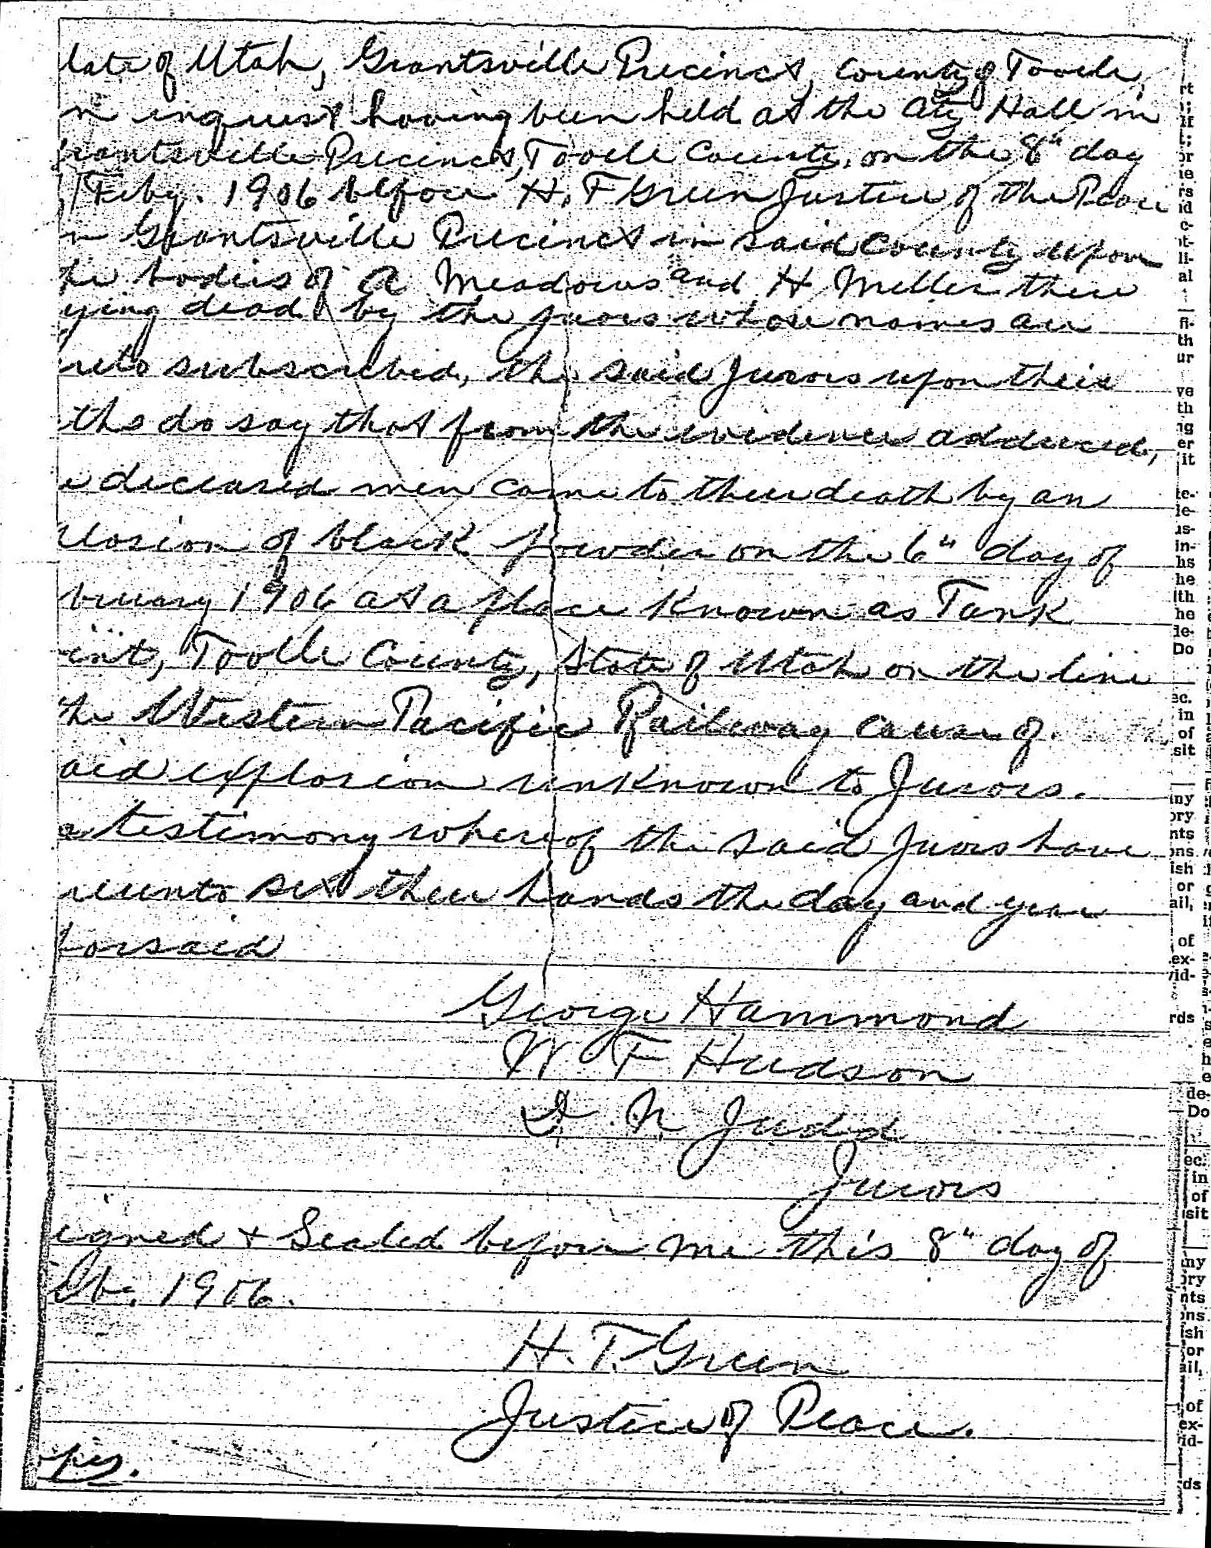 tate of Utah, Grantsville Precinct, County of Tooele,
n inquest having been held at the City Hall in
rantsville Precinct, Tooele County, on the 8" day
f Feby. 1906 before H. F Green Justice of the Peace
n Grantsville Precinct in said County upon
he bodies of A Meadows and H Miller there
ying dead, by the jurors whose names are
reto subscribed, the said Jurors upon their
ths do say that from the evidence adduced,
e deceased men came to their death by an
plosion of black powder on the 6" day of
bruary 1906 at a place Known as Tank
oint, Tooele County, State of Utah on the line
the Western Pacific Railway cause of
aid explosion unKnown to Jurors.
n testimony where of the said Jurors have
reunto set their hands the day and year
forsaid
George Hammond
W F Hudson
D. N. Judd
Jurors
igned + Sealed before me this 8" day of
eb. 1906.
H. T. Green
Justice of Peace.
opies.
rt
or
ie
rs
id
c-
ot-
li-
al
fi-
th
ur
ve
th
ng
er
it
te-
le-
us-
in-
hs
he
ith
he
de-
Do
ec.
in
of
sit
any
ory
nts
ons
ish
or
ail,
of
ex-
vid-
rds
de-
Do
ec.
in
of
sit
any
ory
nts
ons
ish
or
ail,
of
ex-
vid-
ds